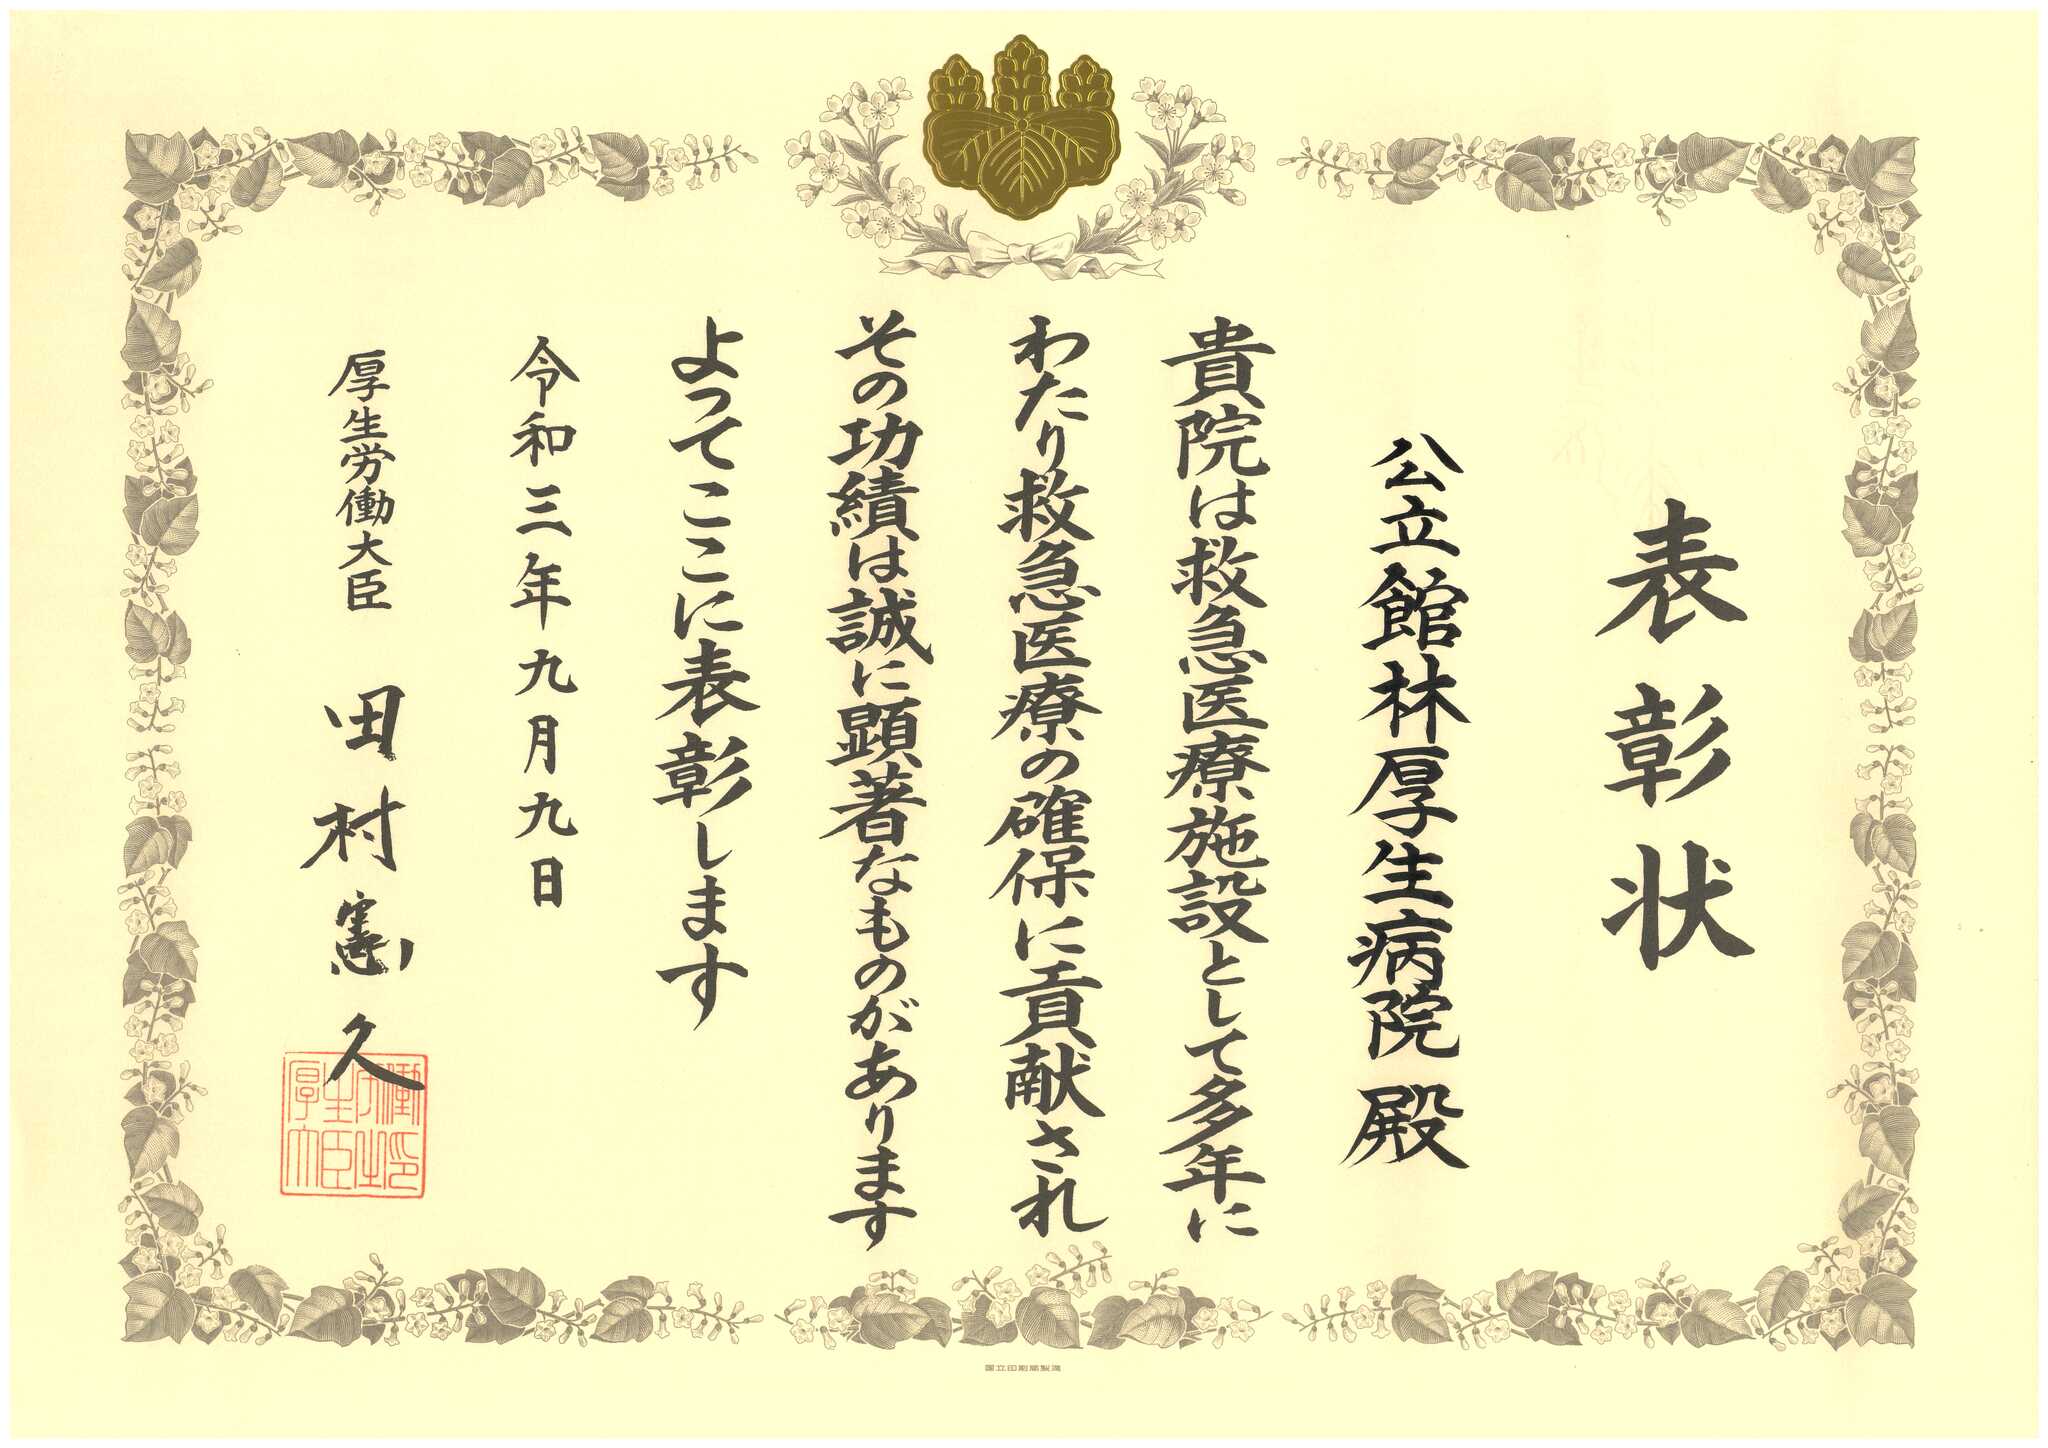 表彰状
公立館林厚生病院 殿
貴院は救急医療施設として多年に
わたり救急医療の確保に貢献され
その功績は誠に顕著なものがあります
よってここに表彰します
令和三年九月九日
厚生労働大臣 田村憲久
厚生労働
大臣之印
国立印刷局製造